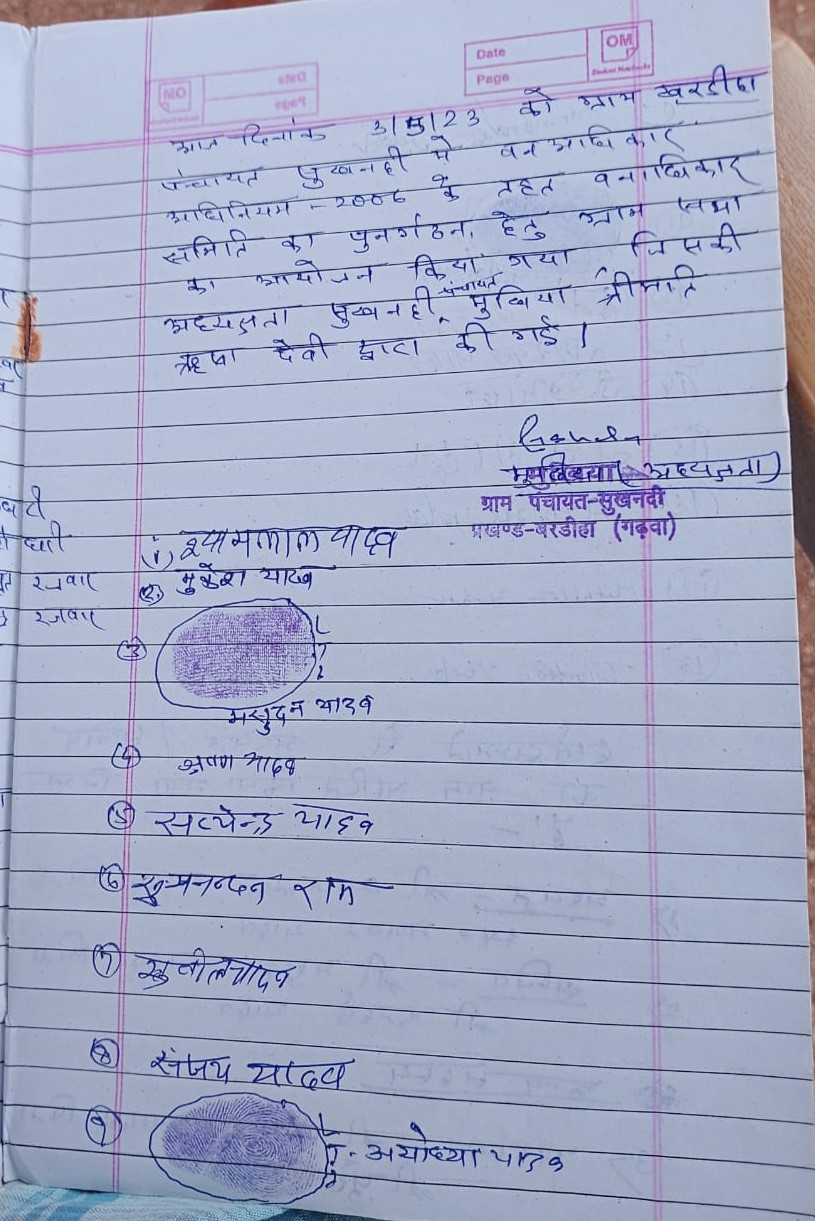 Date
Page
OM
आज दिनांक 3/5/23 को ग्राम खरडीहा
पंचायत सुखनदी में वन अधिकार
अधिनियम - 2006 के तहत वनाधिकार
समिति का पुनर्गठन हेतु ग्राम सभा
का आयोजन किया गया जिसकी
अध्यक्षता सुखनदी पंचायत मुखिया श्रीमति
देवी द्वारा की गई।
मुखिया (अध्यक्षता)
ग्राम पंचायत-सुखनदी
प्रखण्ड-बरडीहा (गढ़वा)
(1) श्यामलाल यादव
(2) मुकेश यादव
(3)
मसुदन यादव
(4) श्रवण यादव
(5) सत्येन्द्र यादव
(6) राम
(7) सुनील यादव
(8) संजय यादव
(9) अयोध्या यादव
रजवार
रजवार